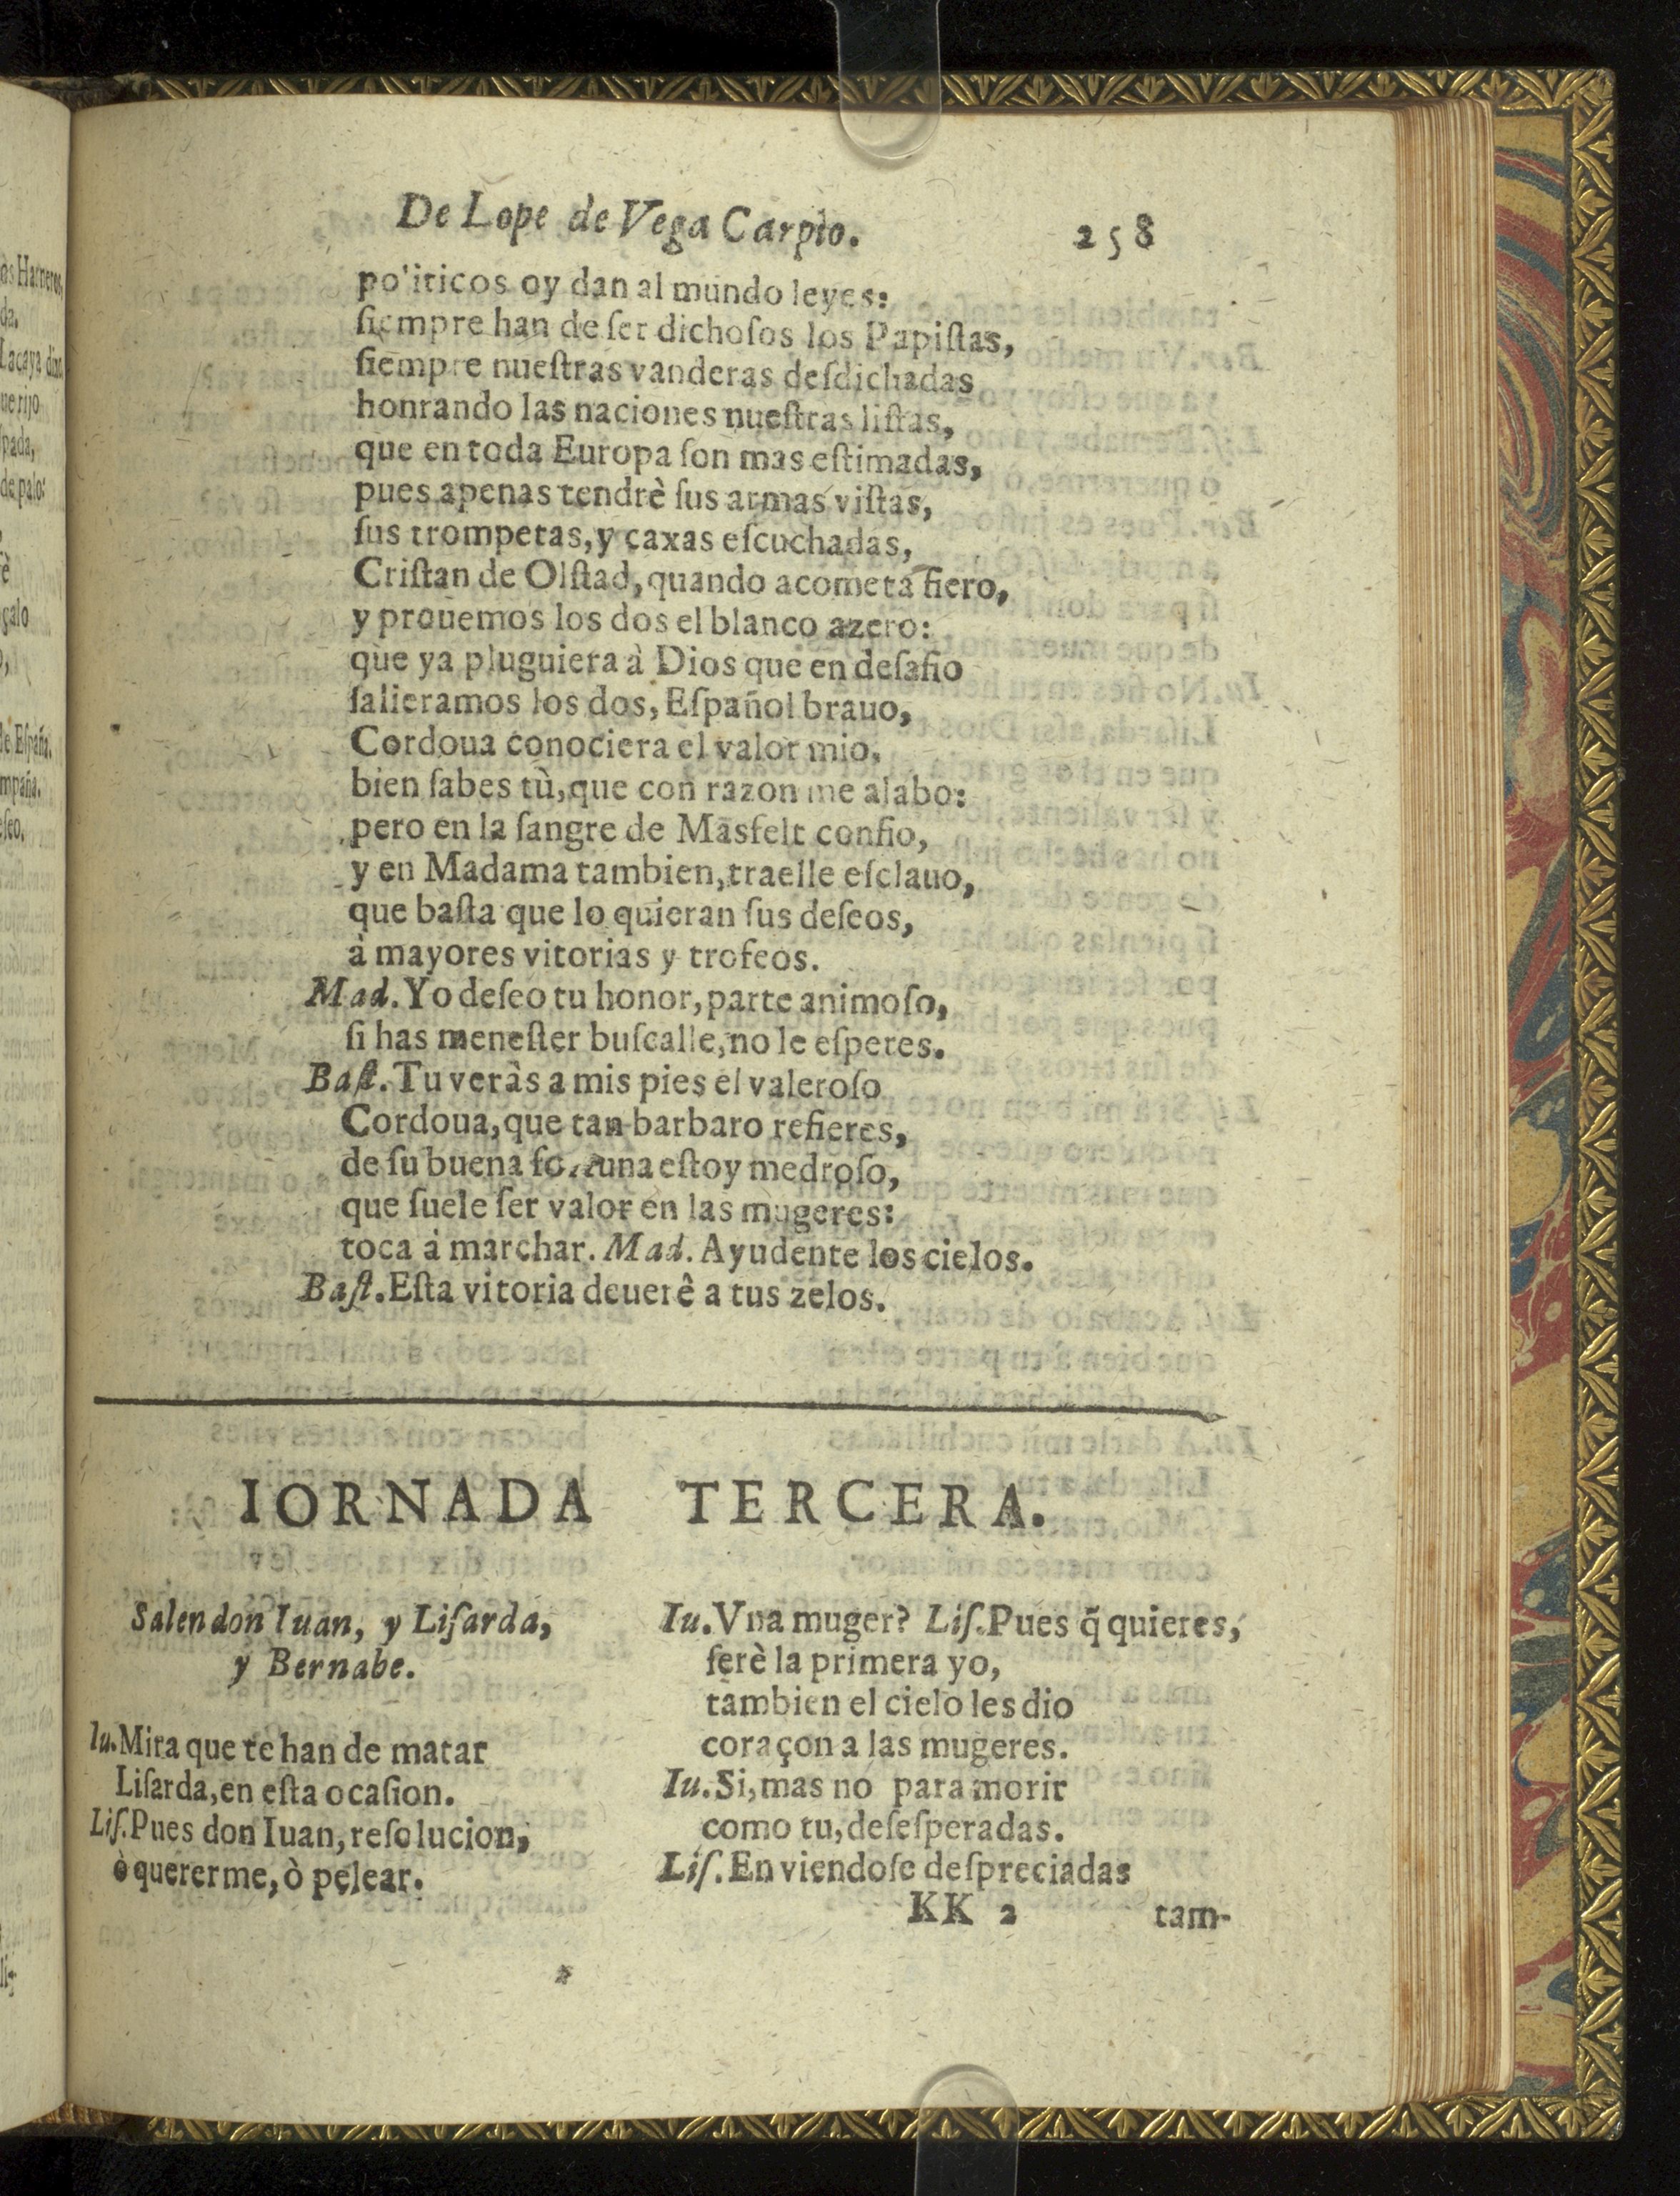 De Lope de Vega Carpio. 258
po'iticos oy dan al mundo leyes:
siempre han de ser dichoſos los Papiſtas,
ſiempre nueſtras vanderas deſdichadas
honrando las naciones nueſtras liſtas,
que en toda Europa ſon mas eſtimadas,
pues apenas tendrè ſus armas viſtas,
ſus trompetas, y caxas eſcuchadas,
Criſtan de Olſtad, quando acometa fiero,
y prouemos los dos el blanco azero:
que ya pluguiera à Dios que en deſafio
ſalieramos los dos, Eſpañol brauo,
Cordoua conociera el valor mio,
bien ſabes tù, que con razon me alabo:
pero en la ſangre de Masfelt confio,
y en Madama tambien, traelle eſclauo,
que baſta que lo quieran ſus deſeos,
à mayores vitorias y trofeos.
Mad. Yo deſeo tu honor, parte animoſo,
ſi has meneſter buſcalle, no le eſperes.
Baſt. Tu veràs a mis pies el valeroſo
Cordoua, que tan barbaro refieres,
de ſu buena fortuna eſtoy medroſo,
que ſuele ſer valor en las mugeres:
toca à marchar. Mad. Ayudente los cielos.
Baſt. Eſta vitoria deuerê a tus zelos.
IORNADA TERCERA.
Salen don Iuan, y Liſarda,
y Bernabe.
Iu. Mira que te han de matar
Liſarda, en eſta ocaſion.
Liſ. Pues don Iuan, reſolucion,
ò quererme, ò pelear.
Iu. Vna muger? Liſ. Pues q̃ quieres,
ſerè la primera yo,
tambien el cielo les dio
coraçon a las mugeres.
Iu. Si, mas no para morir
como tu, deſeſperadas.
Liſ. En viendoſe deſpreciadas
KK 2 tam-